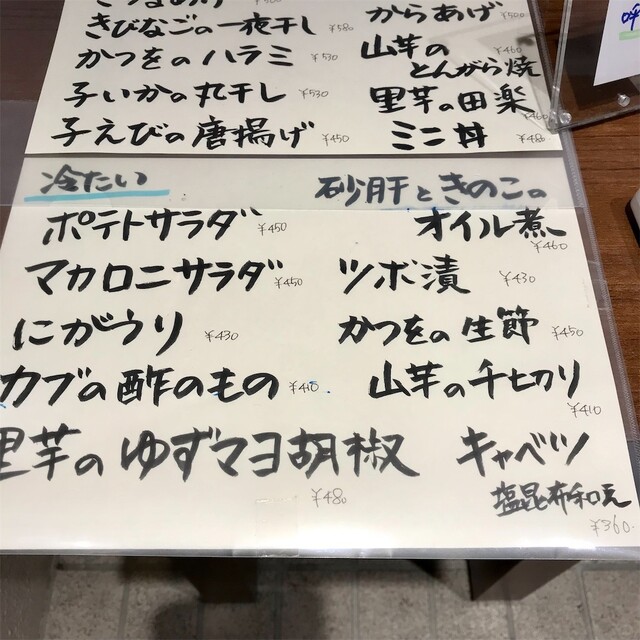 きびなごの一夜干し ¥580
かつをのハラミ ¥530
子いかの丸干し ¥530
子えびの唐揚げ ¥450
からあげ ¥500
山芋の
とんがら焼 ¥460
里芋の田楽 ¥460
ミニ丼 ¥480
冷たい
ポテトサラダ ¥450
マカロニサラダ ¥450
にがうり ¥430
カブの酢のもの ¥410
里芋のゆずマヨ胡椒 ¥480
砂肝ときのこの
オイル煮 ¥460
ツボ漬 ¥430
かつをの生節 ¥450
山芋の千切り ¥410
キャベツ
塩昆布和え ¥360